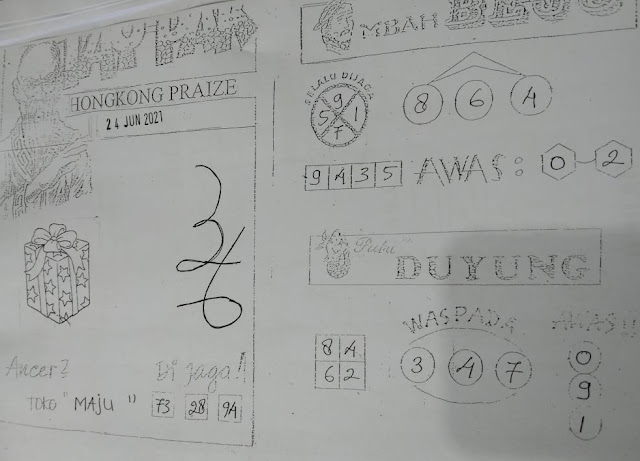 HONGKONG PRAIZE
24 JUN 2021
3
6
Ancer? Di jaga!!
TOKO "MAJU" 73 28 94
MBAH BEJO
SELALU DIJAGA
9
5 1
7
8 6 4
9 4 3 5 AWAS: 0 - 2
Putri
DUYUNG
8 4
6 2
WASPADA
3 4 7
AWAS!!
0
9
1